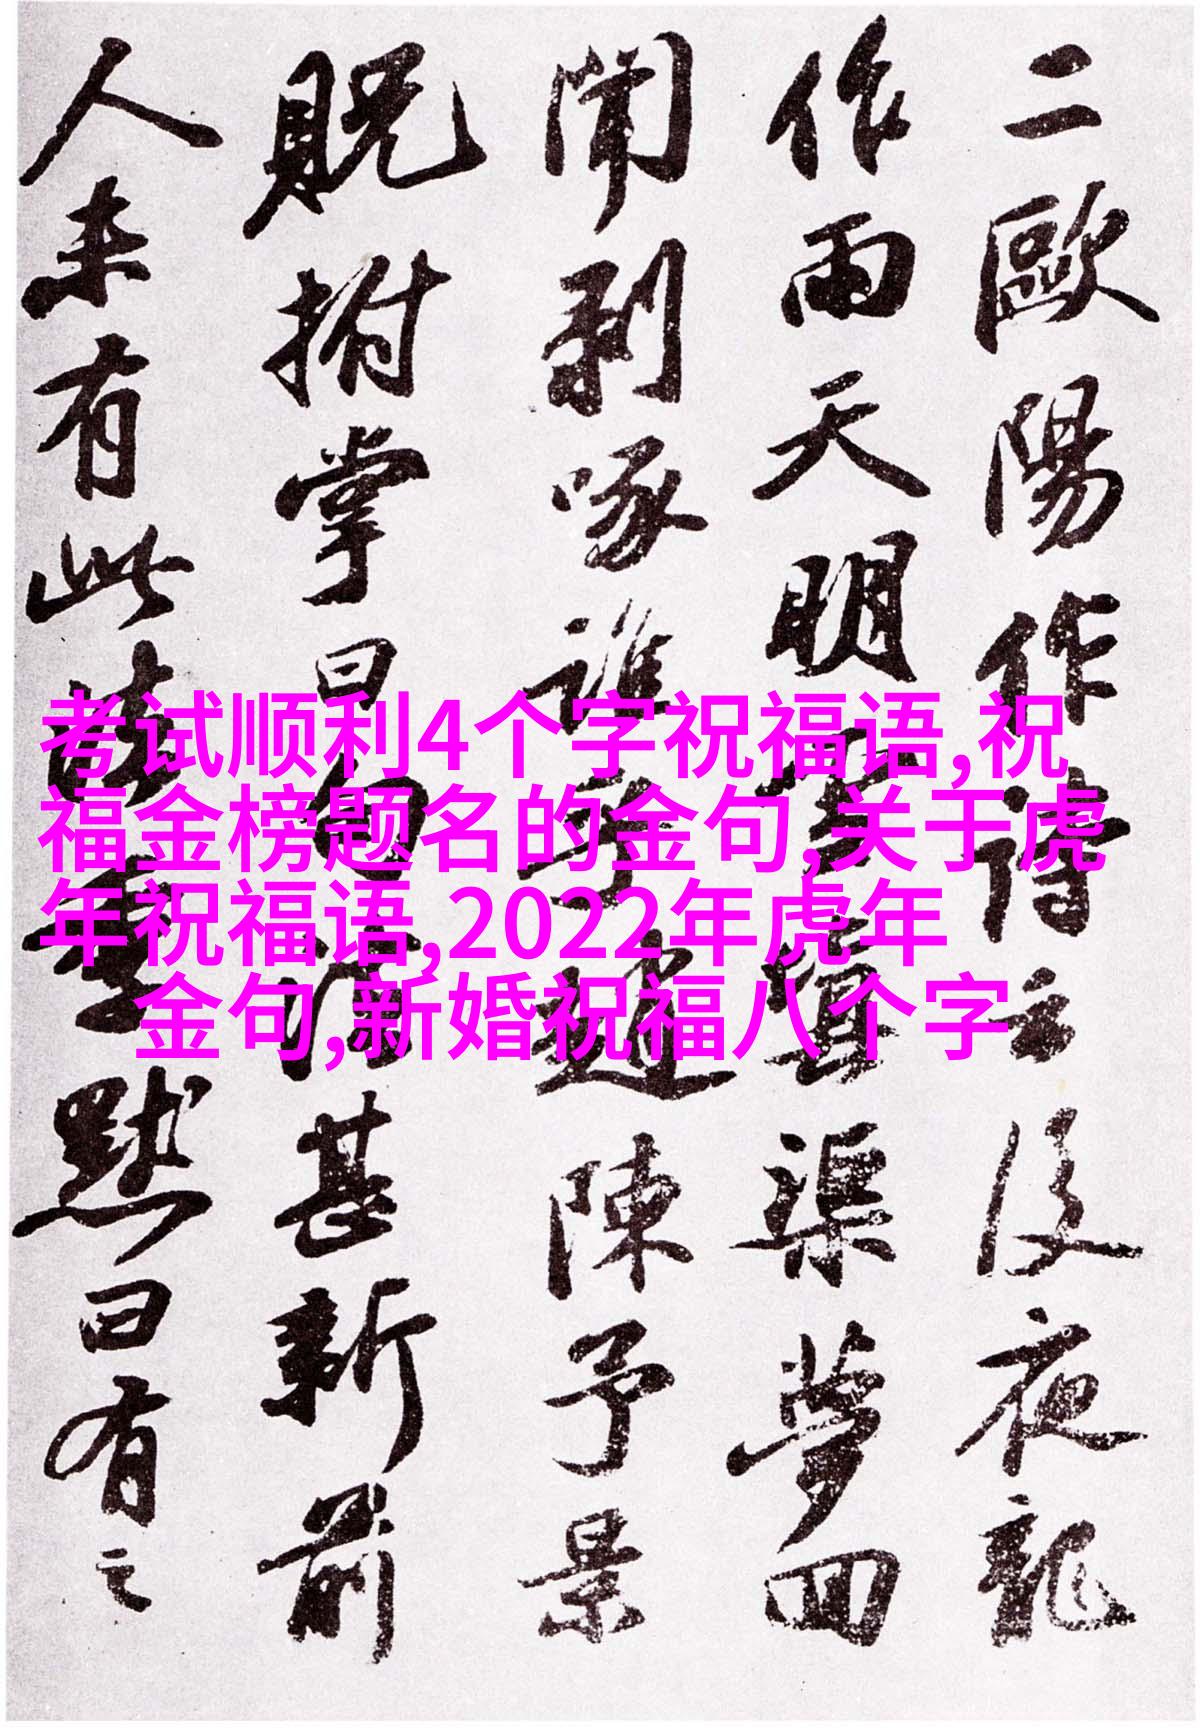 二歐陽作詩云後夜龍
作雨天明渠夢回
聞剥啄誰趙陳予景
貺拊掌曰甚新前
人未有此默曰有之
考试顺利4个字祝福语,祝
福金榜题名的金句,关于虎
年祝福语,2022年虎年
金句,新婚祝福八个字